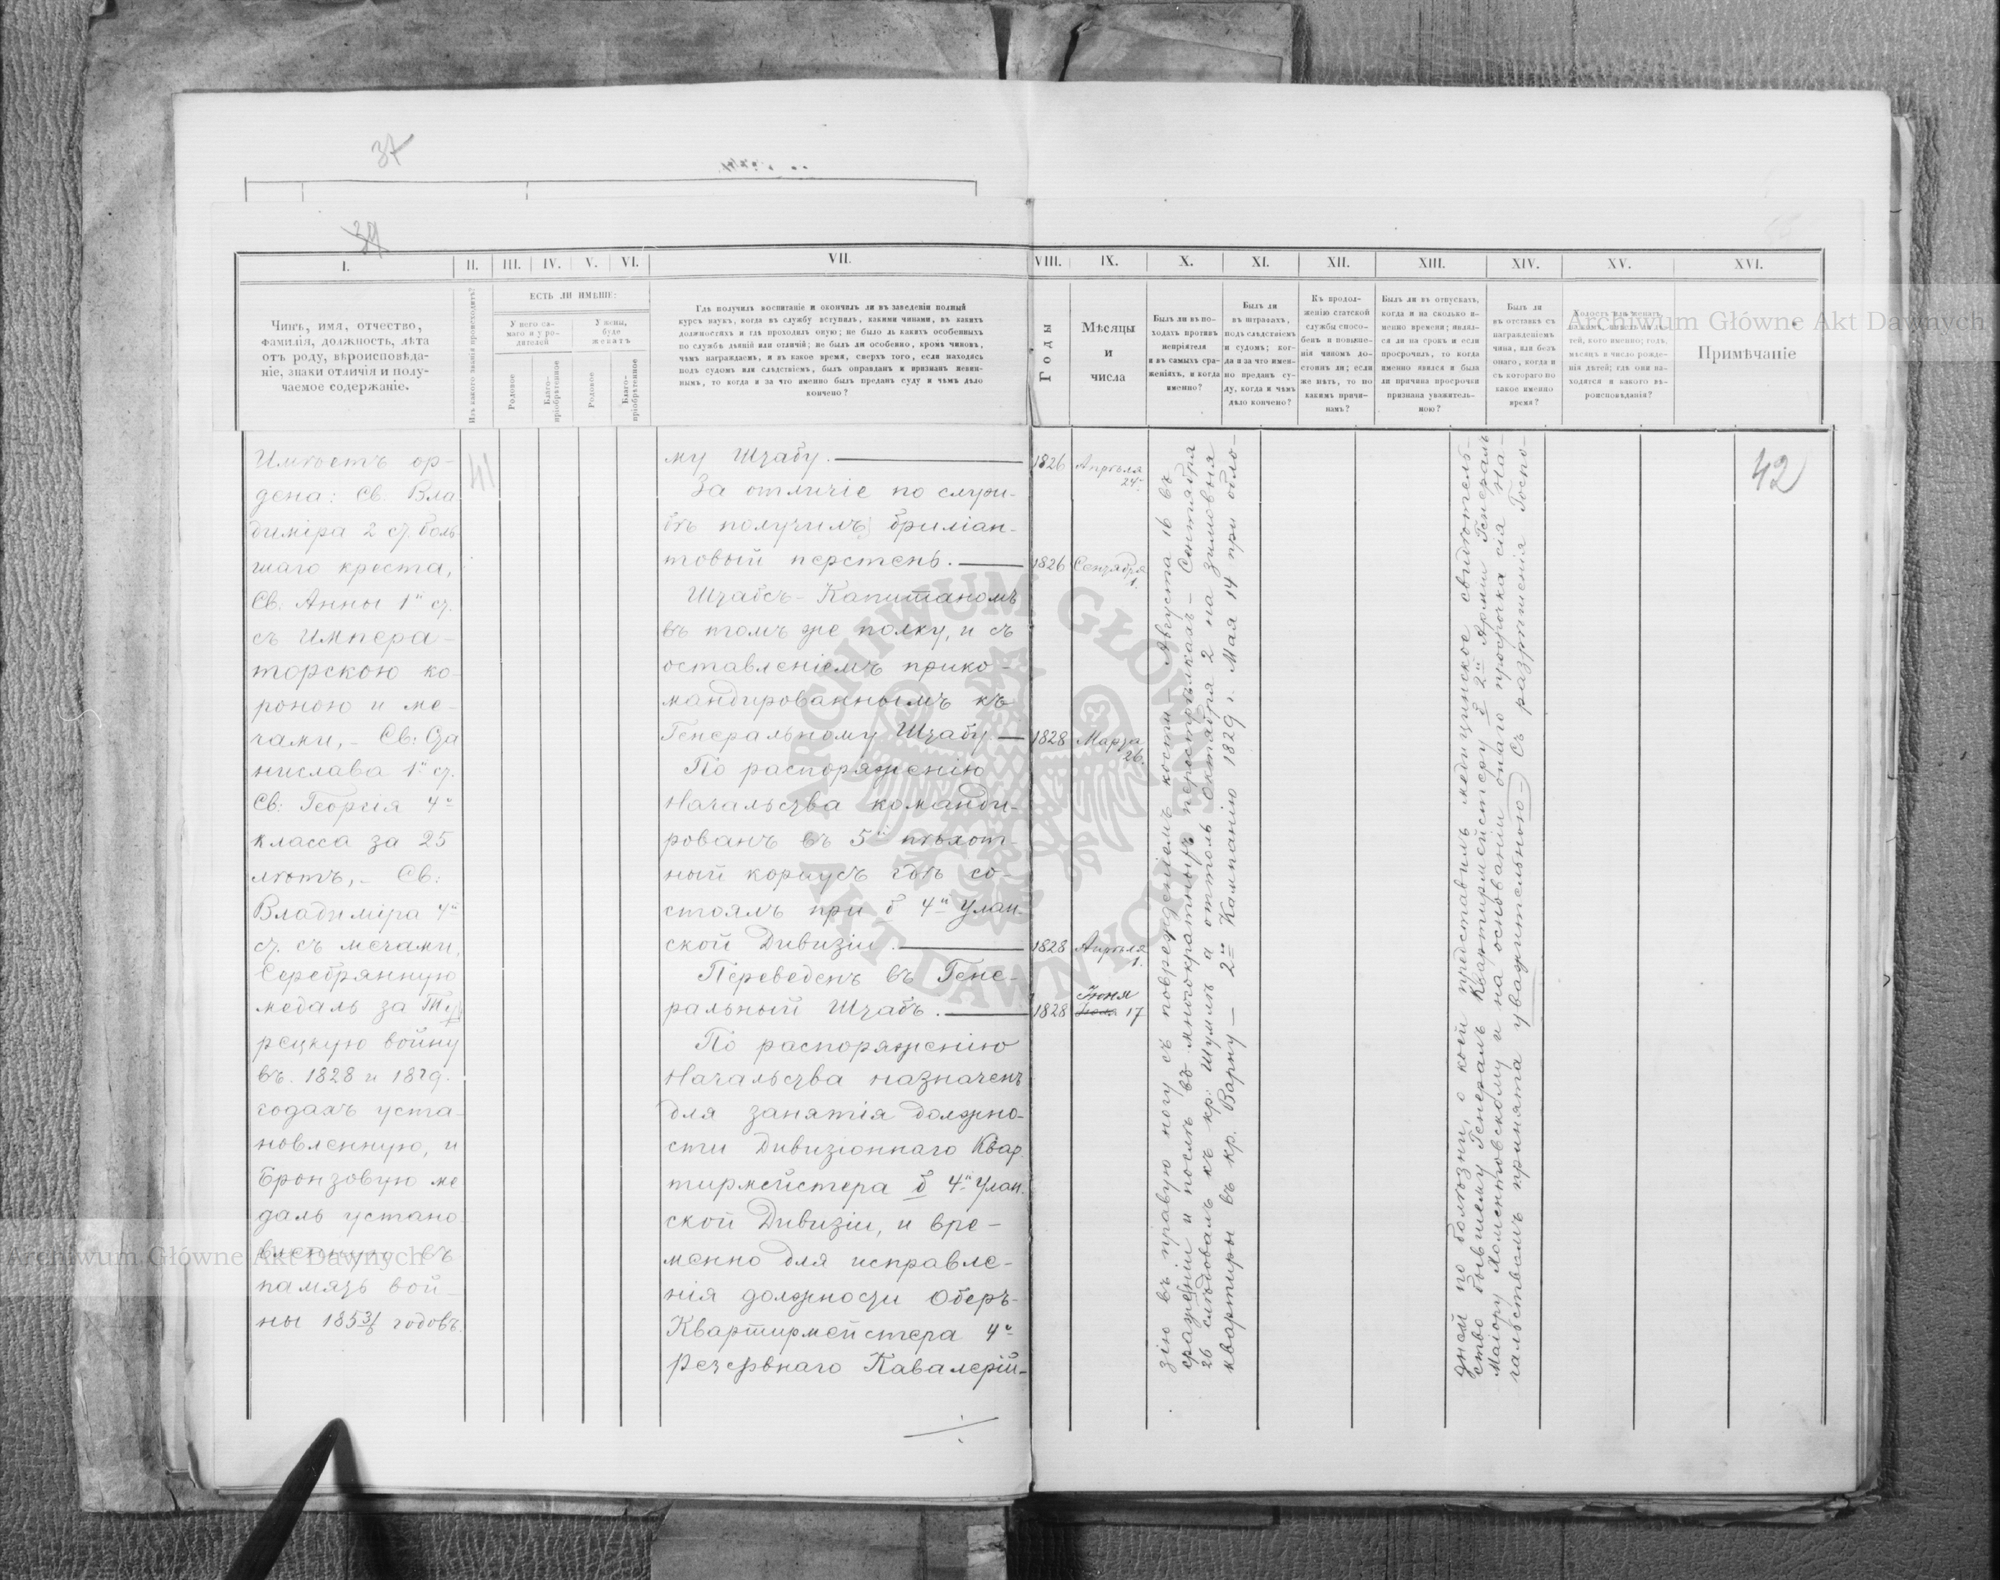 37
39
I.
II.
III.
IV.
V.
VI.
VII.
VIII.
IX.
X.
XI.
XII.
XIII.
XIV.
XV.
XVI.
Чинъ, имя, отчество,
фамилія, должность, лѣта
отъ роду, вѣроисповѣда-
ніе, знаки отличія и полу-
чаемое содержаніе.
Изъ какого званія происходитъ?
ЕСТЬ ЛИ ИМѢНІЕ:
У него са-
маго и у ро-
дителей
У жены,
буде
женатъ
Родовое
Благо-
пріобрѣтенное
Родовое
Благо-
пріобрѣтенное
Гдѣ получилъ воспитаніе и окончилъ ли въ заведеніи полный
курсъ наукъ, когда въ службу вступилъ, какими чинами, въ какихъ
должностяхъ и гдѣ проходилъ оную; не было ль какихъ особенныхъ
по службѣ дѣяній или отличій; не былъ ли особенно, кромѣ чиновъ,
чѣмъ награждаемъ, и въ какое время, сверхъ того, если находясь
подъ судомъ или слѣдствіемъ, былъ оправданъ и признанъ невин-
нымъ, то когда и за что именно былъ преданъ суду и чѣмъ дѣло
кончено?
Годы
Мѣсяцы
и
числа
Былъ ли въ по-
ходахъ противъ
непріятеля
и въ самыхъ сра-
женіяхъ, и когда
именно?
Былъ ли
въ штрафахъ,
подъ слѣдствіемъ
и судомъ; ког-
да и за что имен-
но преданъ су-
ду, когда и чѣмъ
дѣло кончено?
Къ продол-
женію статской
службы спосо-
бенъ и повыше-
нія чиномъ до-
стоинъ ли; если
же нѣтъ, то по
какимъ причи-
намъ?
Былъ ли въ отпускахъ,
когда и на сколько и-
менно времени; являл-
ся ли на срокъ и если
просрочилъ, то когда
именно явился и была
ли причина просрочки
признана уважитель-
ною?
Былъ ли
въ отставкѣ съ
награжденіемъ
чина, или безъ
онаго, когда и
съ котораго по
какое именно
время?
Холостъ или женатъ,
на комъ, имѣетъ ли дѣ-
тей, кого именно; годъ,
мѣсяцъ и число рожде-
нія дѣтей; гдѣ они на-
ходятся и какого вѣ-
роисповѣданія?
Примѣчаніе
Archiwum Główne Akt Dawnych
Имѣетъ ор-
дена: Св: Вла
диміра 2 ст. боль
шаго креста,
Св: Анны 1й ст.
съ Импера-
торскою ко-
роною и ме-
чами, - Св: Ста
нислава 1й ст.
Св: Георгія 4го
класса за 25
лѣтъ, - Св:
Владиміра 4й
ст. съ мечами,
Серебрянную
медаль за Ту
рецкую войну
въ 1828 и 1829
годахъ уста-
новленную, и
Бронзовую ме
даль устано
вленную въ
память вой-
ны 1853/6 годовъ.
41
му Штабу.
За отличіе по служ-
бѣ получилъ бриліан-
товый перстень.
Штабсъ-Капитаномъ
въ томъ же полку, и съ
оставленіемъ прико-
мандированнымъ къ
Генеральному Штабу
По распоряженію
Начальства команди-
рованъ въ 5й пѣхот-
ный корпусъ гдѣ со-
стоялъ при б 4й Улан-
ской Дивизіи.
Переведенъ въ Гене-
ральный Штабъ.
По распоряженію
Начальства назначенъ
для занятія должно-
сти Дивизіоннаго Квар
тирмейстера б 4й Улан.
ской Дивизіи, и вре-
менно для исправле-
нія должности Оберъ-
Квартирмейстера 4го
Резервнаго Кавалерій-
1826 Апрѣля 24.
1826 Сентября 1.
1828 Марта 26.
1828 Апрѣля 1.
1828 Іюня 17
зію въ правую ногу съ поврежденіемъ кости - Августа 16 въ
сраженіи и послѣ въ многократныхъ перестрѣлкахъ - Сентября
26 слѣдовалъ къ кр: Шумлѣ а оттоль Октября 2 на зимовыя
квартиры въ кр. Варну - 2ю Кампанію 1829 г. Мая 14 при обло-
дной по болѣзни, о коей представилъ медицинское свидѣтель-
ство бывшему Генералъ Квартирмейстеру б 2й Арміи Генералъ
Маіору Хоментовскому и на основаніи онаго просрочка сія На-
чальствомъ принята уважительною) Съ разрѣшенія Госпо-
42
Archiwum Główne Akt Dawnych
ARCHIWUM GŁÓWNE AKT DAWNYCH